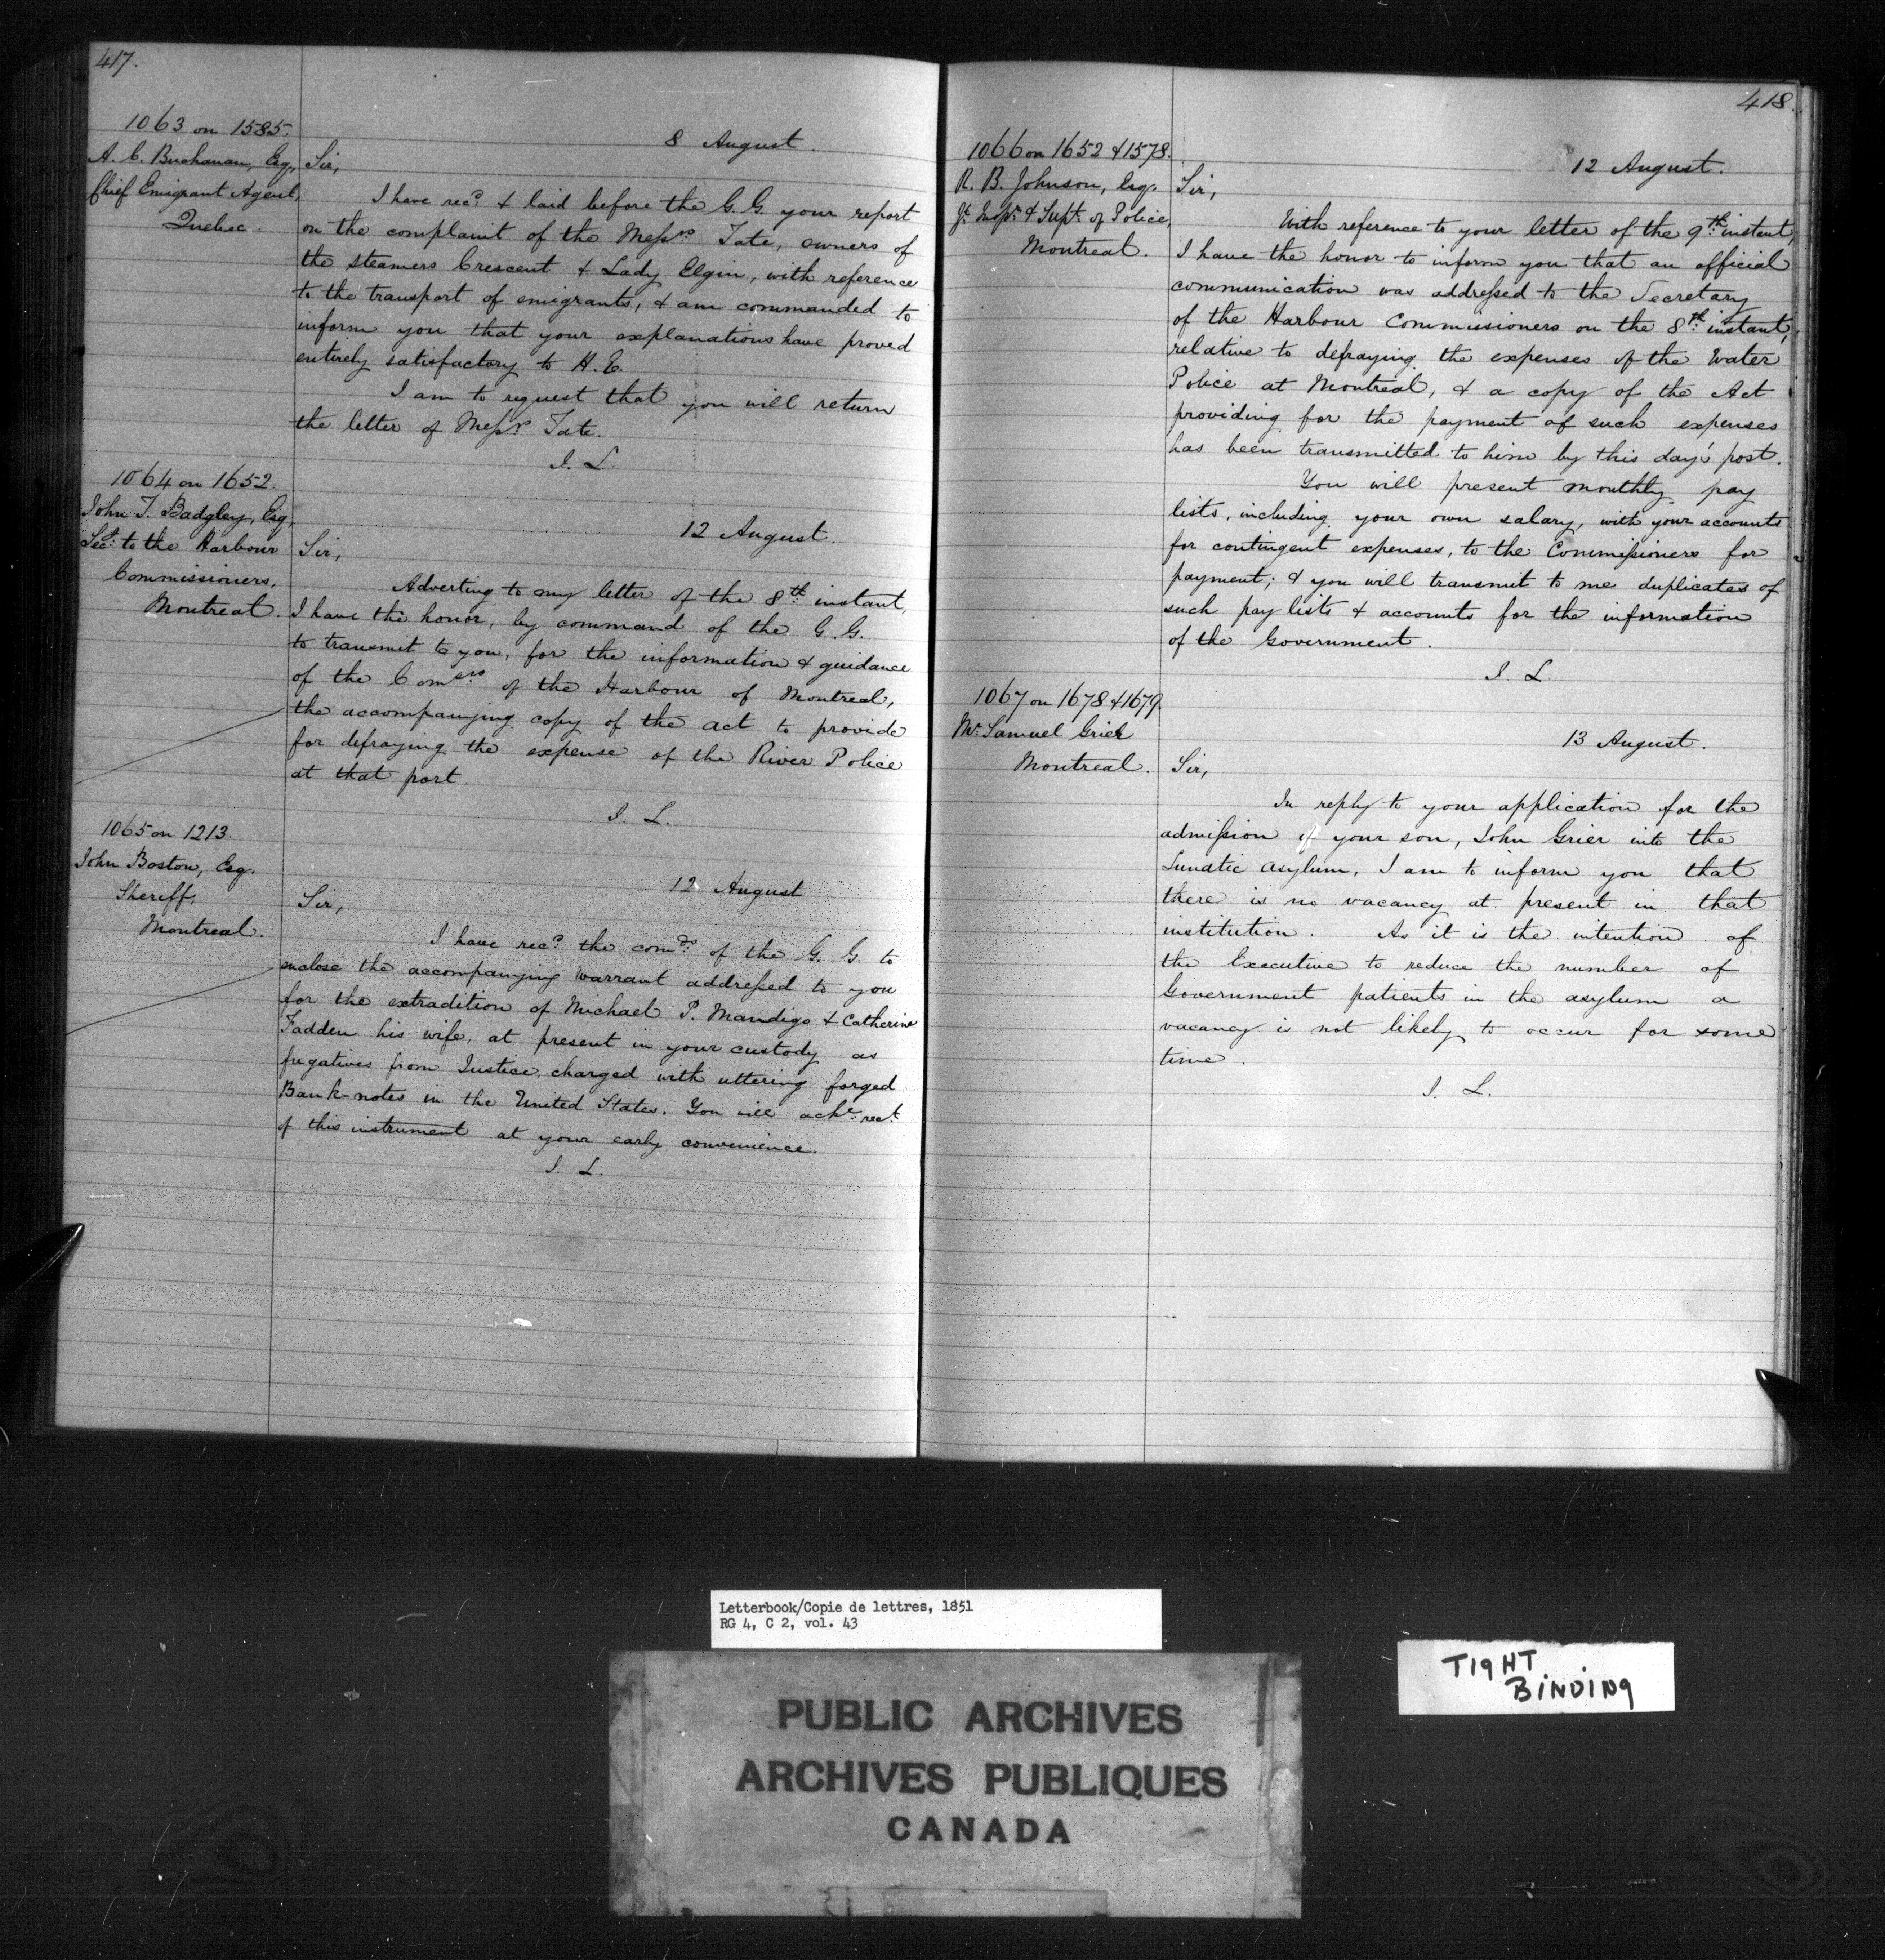 417.
1063 on 1585.
A. C. Buchanan, Esq,
Chief Emigrant Agent,
Quebec.
8 August.
Sir,
I have recd. & laid before the G. G. your report
on the complaint of the Messrs Tate, owners of
the steamers Crescent & Lady Elgin, with reference
to the transport of emigrants, & am commanded to
inform you that your explanations have proved
entirely satisfactory to H. E.
I am to request that you will return
the letter of Messrs Tate.
I. L.
1064 on 1652.
John T. Badgley, Esq,
Secy. to the Harbour
Commissioners,
Montreal.
12 August.
Sir,
Adverting to my letter of the 8th. instant,
I have the honor, by command of the G. G.
to transmit to you, for the information & guidance
of the Comers of the Harbour of Montreal,
the accompanying copy of the act to provide
for defraying the expense of the River Police
at that port.
I. L.
1065 on 1213.
John Boston, Esq.
Sheriff,
Montreal.
12 August
Sir,
I have recd. the comds. of the G. G. to
enclose the accompanying warrant addressed to you
for the extradition of Michael P. Mandigo & Catherine
Fadden his wife, at present in your custody as
fugatives from Justice, charged with uttering forged
Bank-notes in the United States. You will acke. rect.
of this instrument at your early convenience.
I. L.
418.
1066 on 1652 & 1578.
R. B. Johnson, Esq.
Jt. Inspr. & Supt. of Police,
Montreal.
12 August.
Sir,
With reference to your letter of the 9th. instant,
I have the honor to inform you that an official
communication was addressed to the Secretary
of the Harbour Commissioners on the 8th. instant,
relative to defraying the expenses of the Water
Police at Montreal, & a copy of the Act
providing for the payment of such expenses
has been transmitted to him by this day's post.
You will present monthly pay
lists, including your own salary, with your accounts
for contingent expenses, to the Commissioners for
payment; & you will transmit to me duplicates of
such pay lists & accounts for the information
of the Government.
I. L.
1067 on 1678 & 1679.
Mr. Samuel Grier
Montreal.
13 August.
Sir,
In reply to your application for the
admission of your son, John Grier into the
Lunatic asylum, I am to inform you that
there is no vacancy at present in that
institution. As it is the intention of
the Executive to reduce the number of
Government patients in the asylum a
vacancy is not likely to occur for some
time.
I. L.
Letterbook/Copie de lettres, 1851
RG 4, C 2, vol. 43
TIGHT
BINDING
PUBLIC ARCHIVES
ARCHIVES PUBLIQUES
CANADA